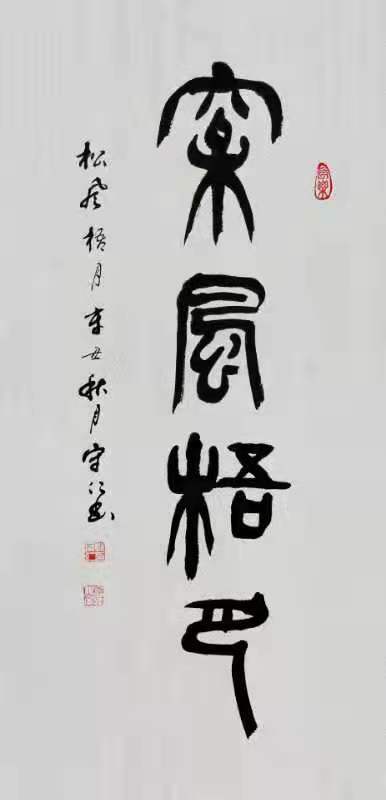 松風梧月
松风梧月辛丑秋月守仁书